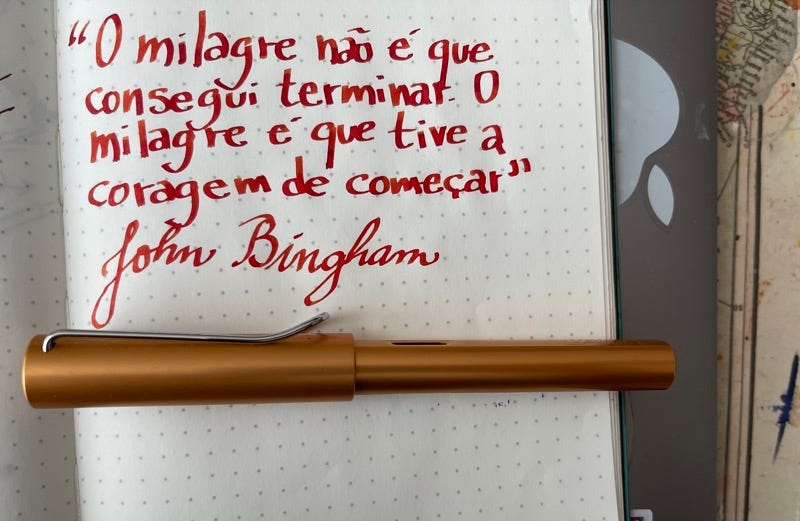 “O milagre não é que
consegui terminar. O
milagre é que tive a
coragem de começar”
John Bingham